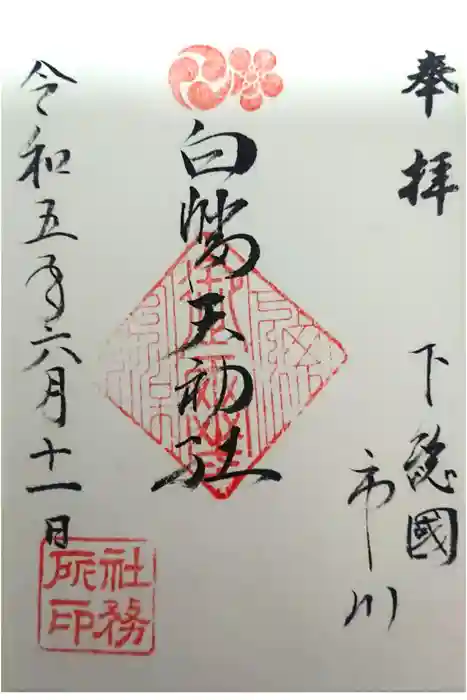 奉拝
下総國
市川
白幡天神社
令和五年六月十一日
社務
所印